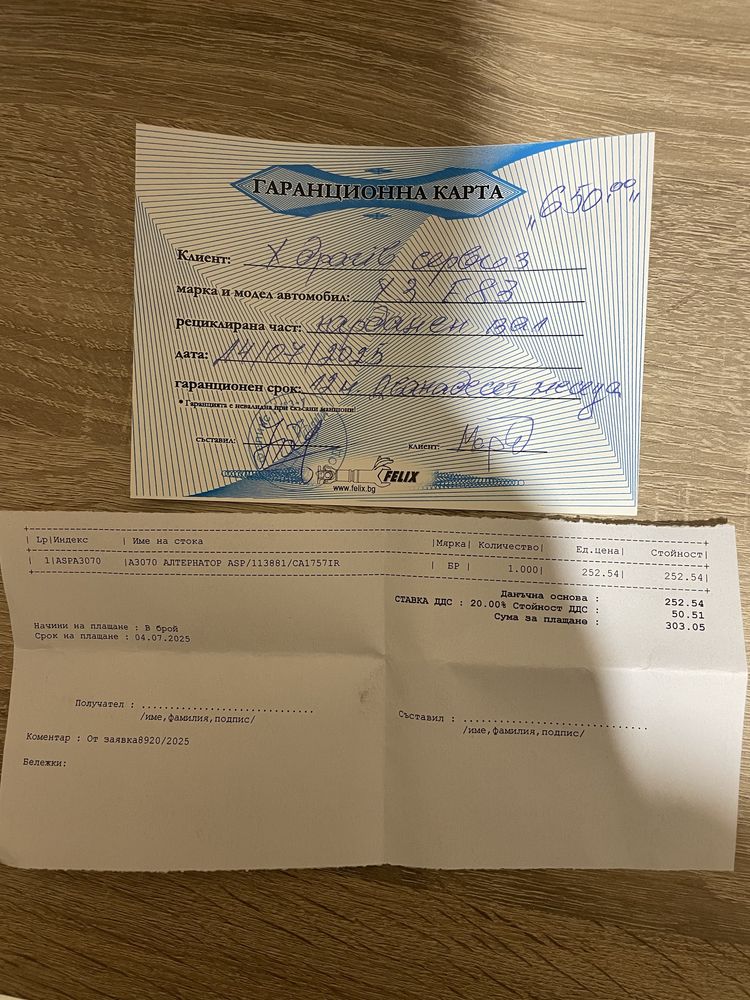 ГАРАНЦИОННА КАРТА
„650.00„
Клиент: Х Драгів сервиз
марка и модел автомобил: X3 E83
рециклирана част: карданен вал
дата: 14/07/2025
гаранционен срок: 12м Дванадесет месеца
* Гаранцията е невалидна при скъсани маншони!
съставил:
клиент:
FELIX
www.felix.bg
| Lp|Индекс | Име на стока |Мярка| Количество| Ед.цена| Стойност|
| 1|ASPA3070 |A3070 АЛТЕРНАТОР ASP/113881/CA1757IR | БР | 1.000| 252.54| 252.54|
Данъчна основа : 252.54
СТАВКА ДДС : 20.00% Стойност ДДС : 50.51
Сума за плащане : 303.05
Начини на плащане : В брой
Срок на плащане : 04.07.2025
Получател : ..............................
/име,фамилия,подпис/
Съставил : ................................
/име,фамилия,подпис/
Коментар : От заявка8920/2025
Бележки: